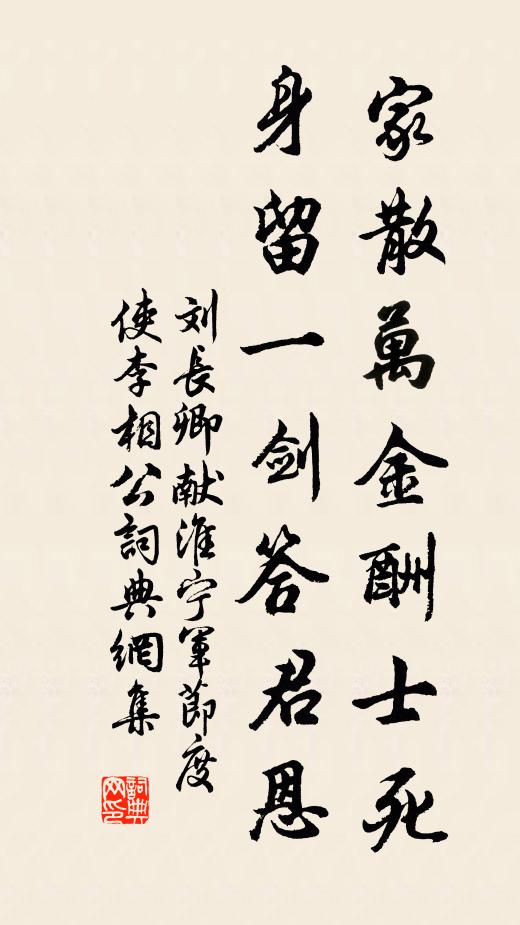 家散萬金酬士死
身留一剑答君恩
刘長卿献淮宁軍節度
使李相公詞典網集
詞典网印